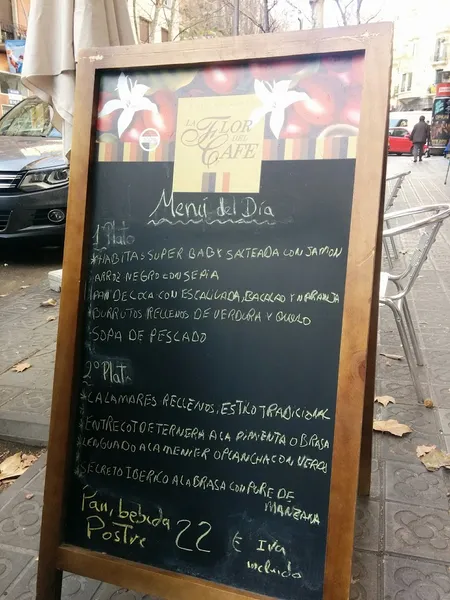 LA
FLOR
DEL
CAFÉ
Menú del Día
1º Plato
*HABITAS SUPER BABY SALTEADA CON JAMON
*ARROZ NEGRO CON SEPIA
PAN DE COCA CON ESCALIVADA, BACALAO Y NARANJA
*BURRUTOS RELLENOS DE VERDURA Y QUESO
*SOPA DE PESCADO
2º Plat
*CALAMARES RELLENOS, ESTILO TRADICIONAL
*ENTRECOT DE TERNERA A LA PIMIENTA O BRASA
*LENGUADO A LA MENIER O PLANCHA CON
SECRETO IBERICO A LA BRASA CON PURE DE
MANZANA
Pan, bebida
Postre 22 € Iva
incluido